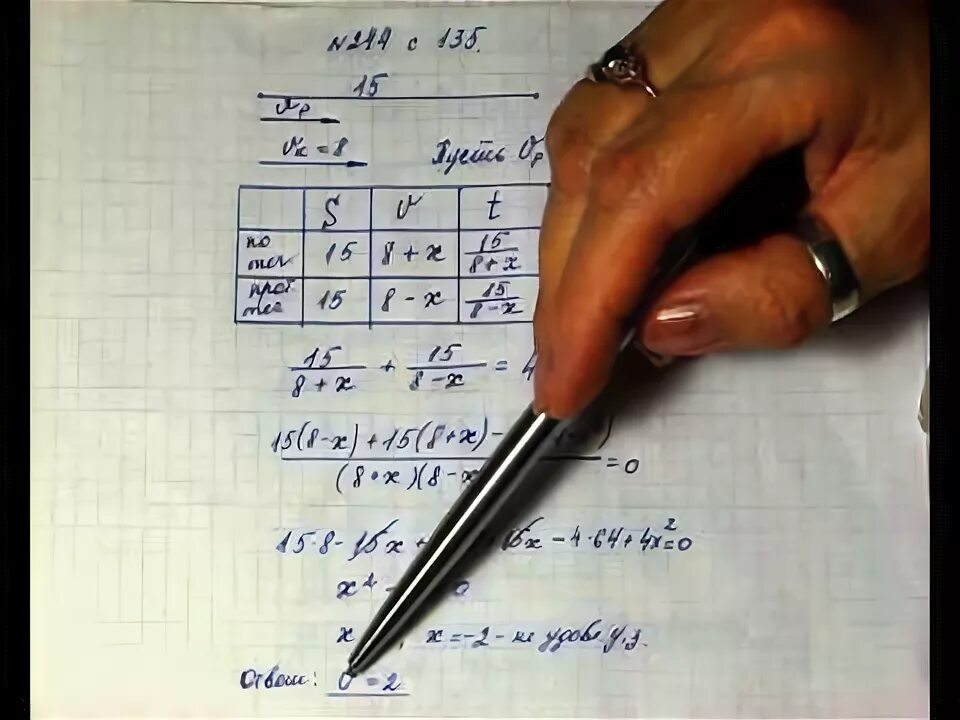 №244 с 136.
15
Vр
Vк = 8 Пусть Vр
S V t
по теч 15 8 + x 15/(8+x)
прот теч 15 8 - x 15/(8-x)
15/(8 + x) + 15/(8 - x) = 4
15(8-x) + 15(8+x) -
(8+x)(8-x = 0
15·8 - 15x + 15x - 4·64 + 4x² = 0
x²
x , x = -2 - не удовл у.з.
Ответ: V = 2